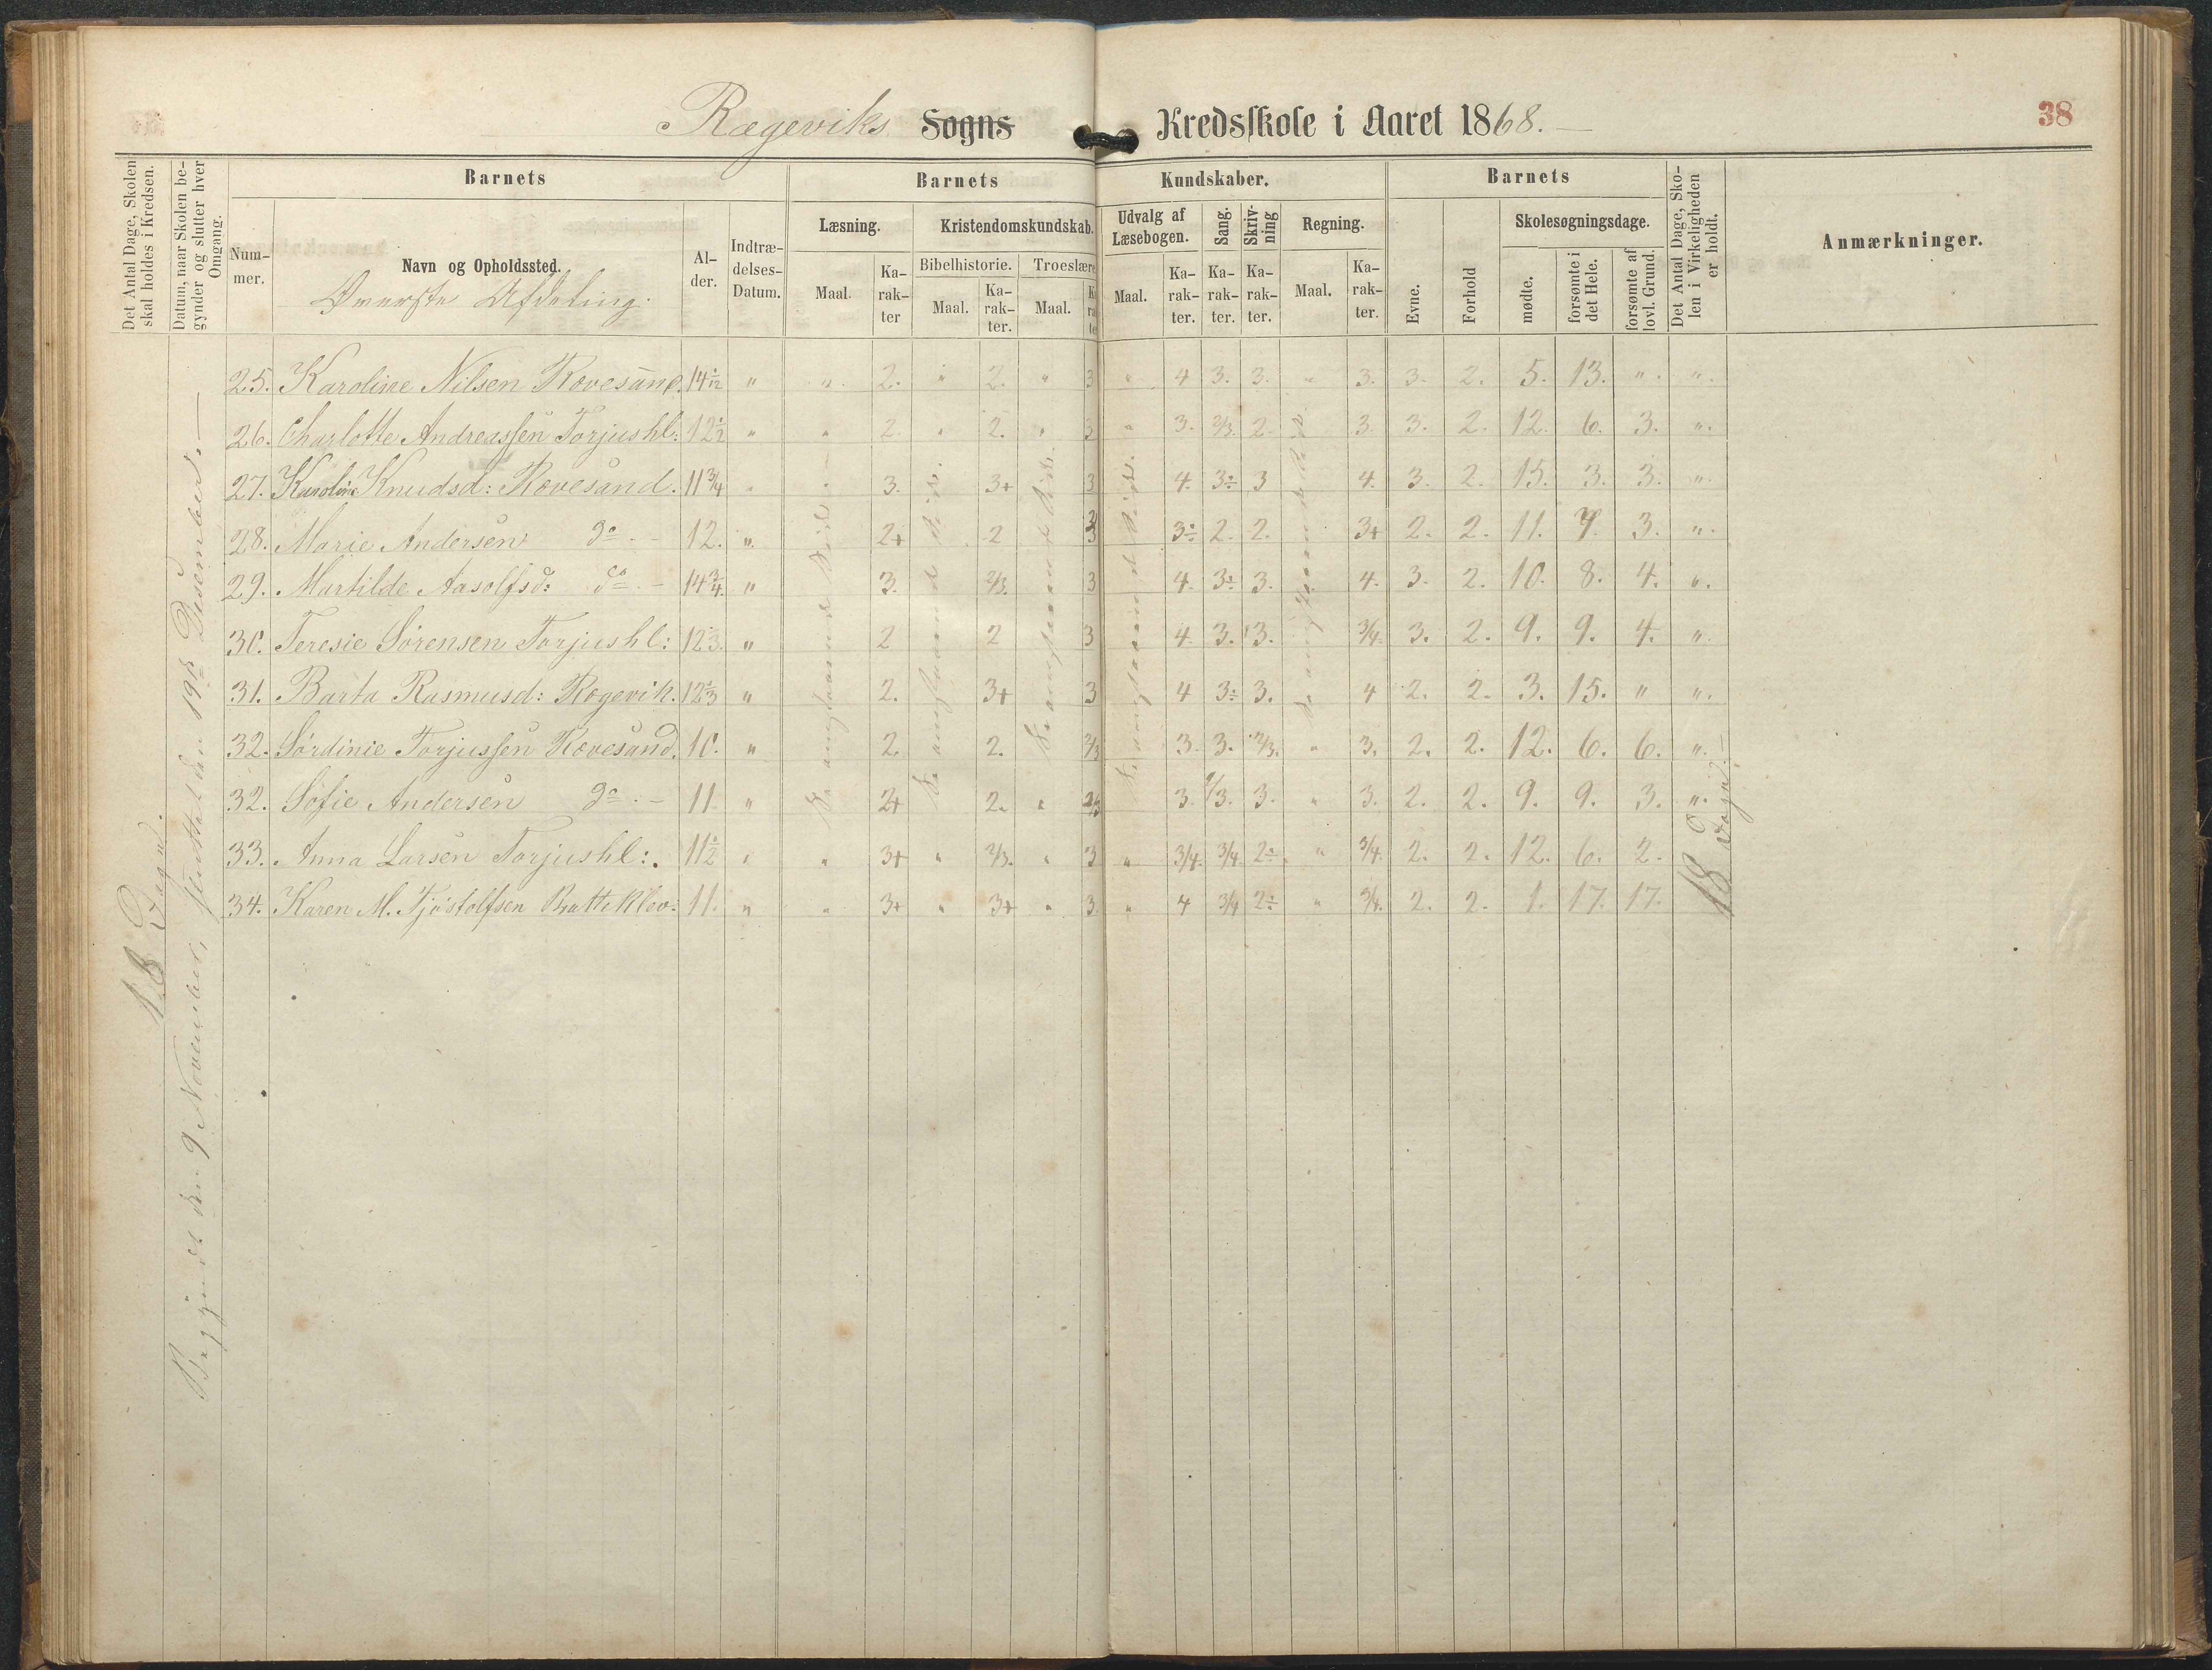 Rægeviks Sogns Kredsskole i Aaret 1868. —
38
Det Antal Dage, Skolen skal holdes i Kredsen.
Datum, naar Skolen begynder og slutter hver Omgang.
Barnets
Barnets
Kundskaber.
Barnets
Det Antal Dage, Skolen i Virkeligheden er holdt.
Anmærkninger.
Nummer.
Navn og Opholdssted.
Øverste Afdeling.
Alder.
Indtrædelses-Datum.
Læsning.
Kristendomskundskab.
Udvalg af Læsebogen.
Sang.
Skrivning
Regning.
Evne.
Forhold
Skolesøgningsdage.
Bibelhistorie.
Troeslære
Maal.
Karakter
Maal.
Karakter.
Maal.
Maal.
Karakter.
Karakter.
Karakter.
Maal.
Karakter.
mødte.
forsømte i det Hele.
forsømte af lovl. Grund.
25. Karoline Nilsen Rovesand. 14 1/12 " " 2. " 2. " 3 " 4 3. 3. " 3. 3. 2. 5. 13. " ".
26. Charlotte Andreassen Torjushl: 12 1/2 " " 2. " 2. " 3 " 3. 2/3. 2. 3. 3. 2. 12. 6. 3. ".
27. Karoline Knudsd: Rovesand. 11 3/4 " " 3. 3+ 3 4. 3÷ 3 4. 3. 2. 15. 3. 3. ".
28. Marie Andersen do. - 12. ". 2+ 2 3 3÷ 2. 2. 3+ 2. 2. 11. 7. 3. ".
29. Martilde Aasolfsd: do. - 14 3/4. " 3. 2/3. 3 4. 3÷ 3. 4. 3. 2. 10. 8. 4. ".
30. Teresie Sørensen Torjushl: 12 " 2 2 3 4. 3. 3. 3/4. 3. 2. 9. 9. 4. ".
31. Barta Rasmusd: Rægevik. 12 " 2. 3+ 3 4 3÷ 3. 4 2. 2. 3. 15. " ".
32. Sørdinie Torjussen Rovesand. 10. " 2. 2. 2/3 3. 3. 2/3. " 3. 2. 2. 12. 6. 6. ".
32. Sofie Andersen do. - 11. " 2+ 2. " 2/3 3. 2/3. 3. " 3. 2. 2. 9. 9. 3. ".
33. Anna Larsen Torjushl:. 11 1/2 " " 3+ " 2/3. " 3 " 3/4. 3/4 2÷ " 3/4. 2. 2. 12. 6. 2.
34. Karen M. Tjøstolfsen Batteklev: 11. " " 3+ " 3+ " 3. " 4 3/4 2÷ " 3/4. 2. 2. 1. 17. 17.
18 Dage.
Begyndt den 9 November, sluttet den 19de Desember. —
18 Dage. —